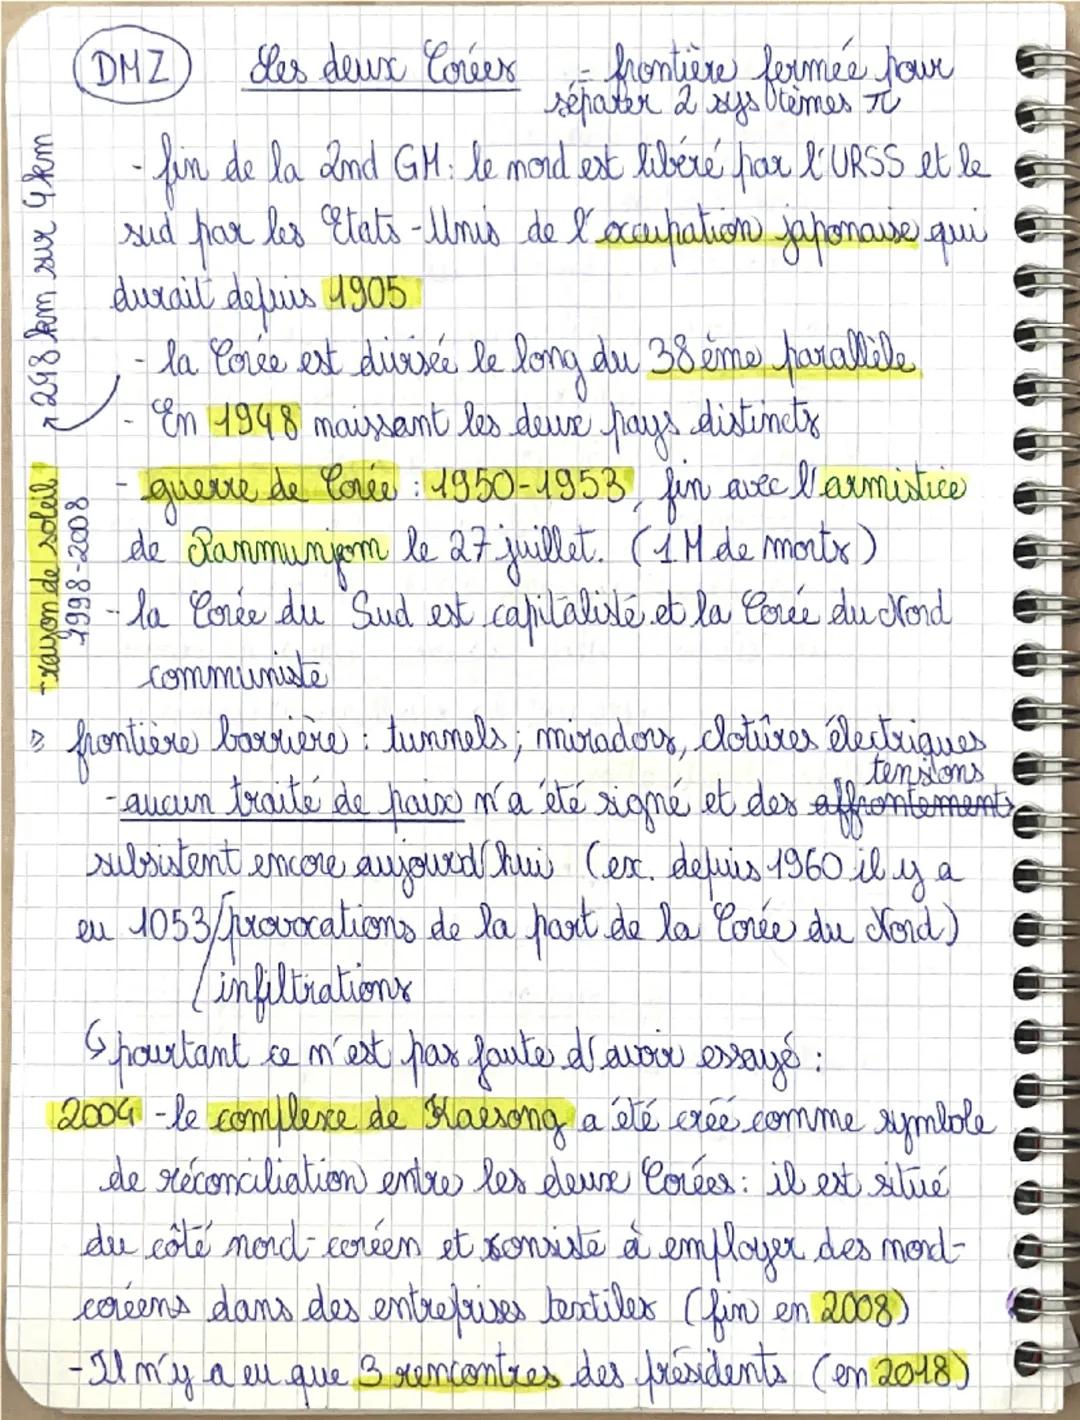 DMZ Les deux Corées = frontière fermée pour
séparer 2 systèmes π
- fin de la 2nd GM : le nord est libéré par l'URSS et le
sud par les Etats-Unis de l'occupation japonaise qui
durait depuis 1905
- la Corée est divisée le long du 38ème parallèle
- En 1948 naissent les deux pays distincts
- guerre de Corée : 1950-1953, fin avec l'armistice
de Panmunjom le 27 juillet. (1M de morts)
- la Corée du Sud est capitaliste et la Corée du Nord
communiste
248 km sur 4 km
- rayon de soleil
1998-2008
⇒ frontière barrière : tunnels ; miradors, clotûres électriques
tensions
- aucun traité de paix n'a été signé et des affrontements
subsistent encore aujourd'hui (ex. depuis 1960 il y a
eu 1053/provocations de la part de la Corée du Nord)
/infiltrations
↳ pourtant ce n'est pas faute d'avoir essayé :
2004 - le complexe de Kaesong a été créé comme symbole
de réconciliation entre les deux Corées : il est situé
du côté nord-coréen et consiste à employer des nord-
coréens dans des entreprises textiles (fin en 2008)
- Il n'y a eu que 3 rencontres des présidents (en 2018)